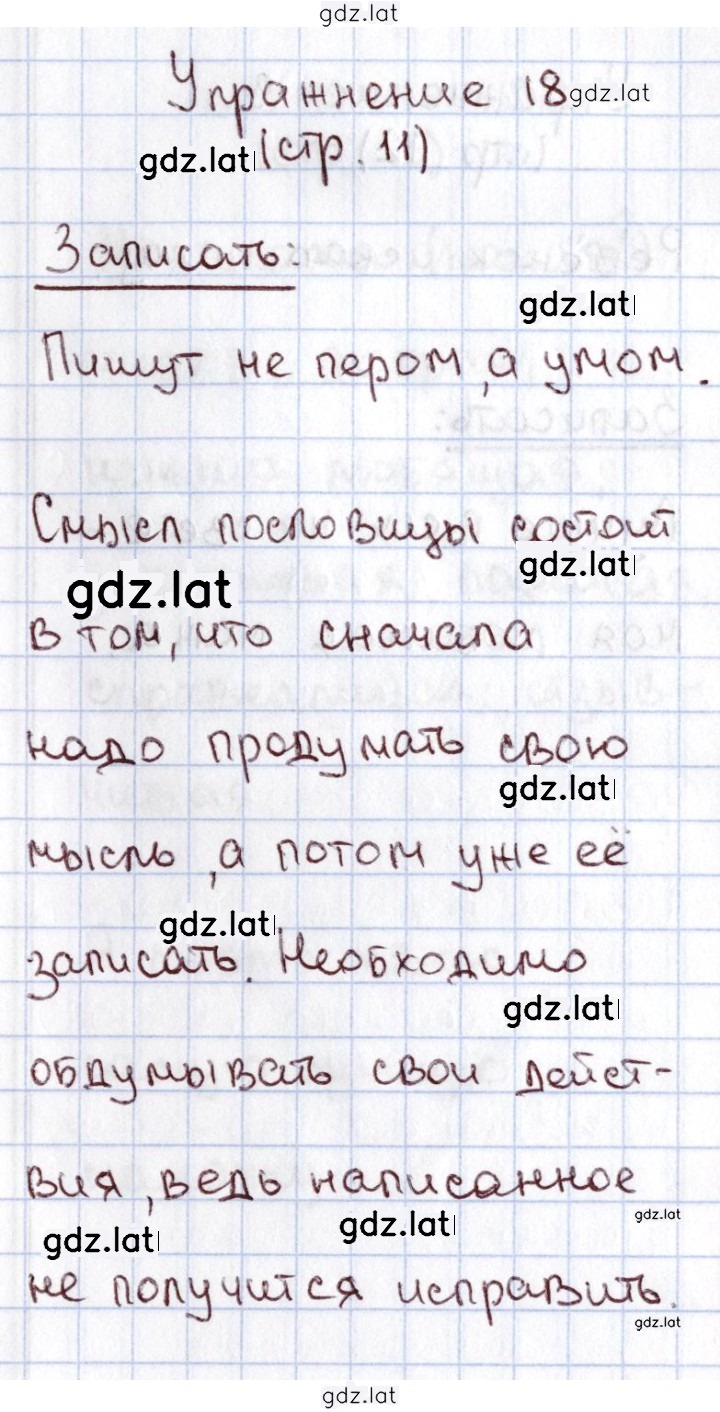 gdz.lat
Упражнение 18 gdz.lat
gdz.lat (стр. 11)
Записать:
gdz.lat
Пишут не пером, а умом.
Смысл пословицы состоит
gdz.lat
gdz.lat
в том, что сначала
надо продумать свою
gdz.lat
мысль, а потом уже её
gdz.lat
записать. Необходимо
gdz.lat
обдумывать свои дейст-
вия, ведь написанное
gdz.lat
gdz.lat
gdz.lat
не получится исправить.
gdz.lat
gdz.lat